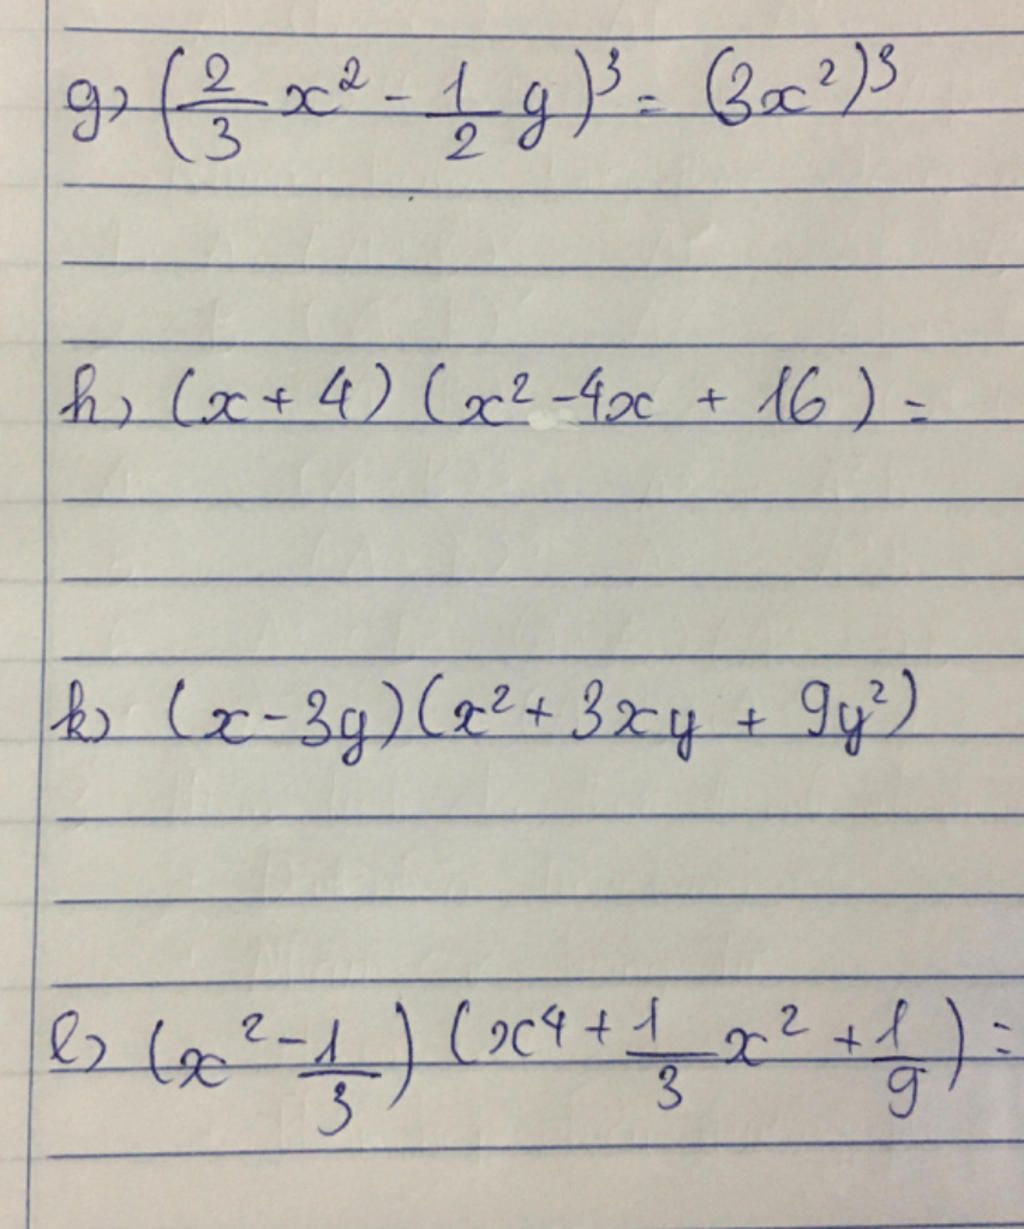 g) (2/3 x² - 1/2 y)³ = (3x²)³
h) (x + 4) (x² - 4x + 16) =
k) (x - 3y)(x² + 3xy + 9y²)
l) (x² - 1/3) (x⁴ + 1/3 x² + 1/9) =